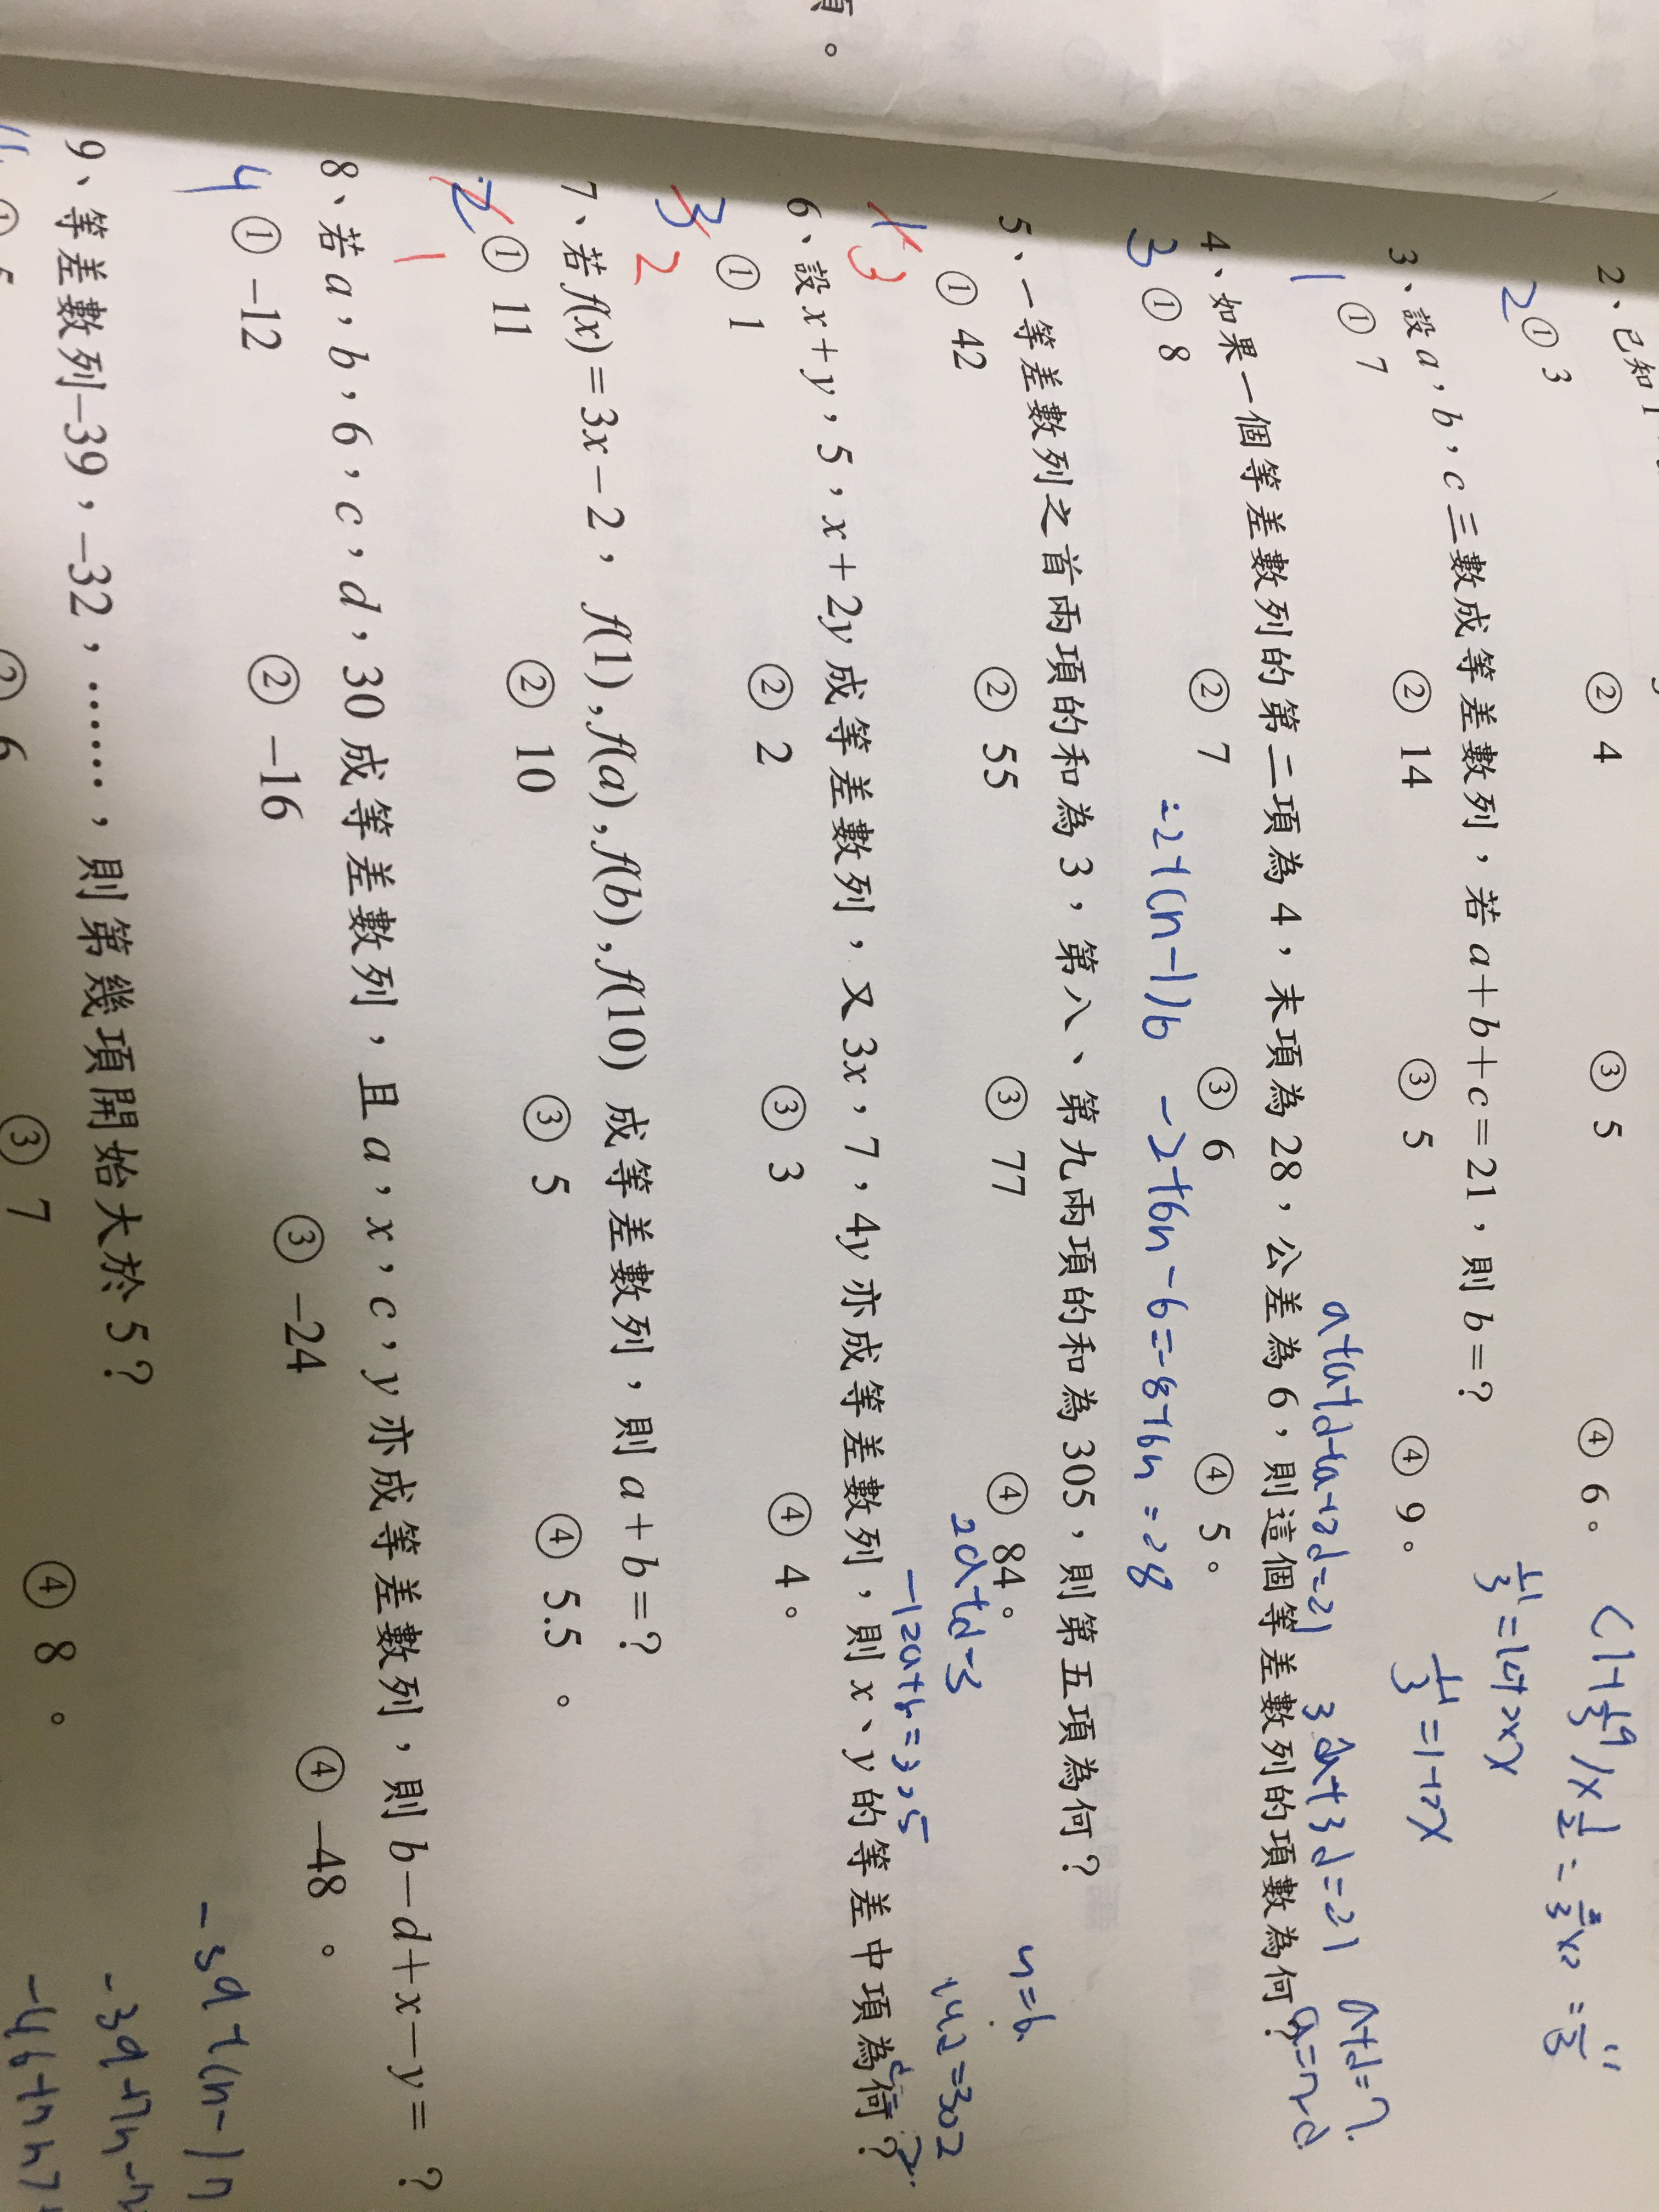 頁。
2、已知1
2 ① 3 ② 4 ③ 5 ④ 6。
3、設a，b，c三數成等差數列，若a＋b＋c＝21，則b＝？
1 ① 7 ② 14 ③ 5 ④ 9。
a+a+d+a+2d=21 3a+3d=21 a+d=7
a=7-d
4、如果一個等差數列的第二項為4，末項為28，公差為6，則這個等差數列的項數為何？
3 ① 8 ② 7 ③ 6 ④ 5。
-2+(n-1)6 -2+6n-6=-8+6n=28
n=6
5、一等差數列之首兩項的和為3，第八、第九兩項的和為305，則第五項為何？
1 3 ① 42 ② 55 ③ 77 ④ 84。
2a+d=3
14d=302
6、設x＋y，5，x＋2y成等差數列，又3x，7，4y亦成等差數列，則x、y的等差中項為何？
3 2 ① 1 ② 2 ③ 3 ④ 4。
7、若f(x)＝3x－2，f(1),f(a),f(b),f(10) 成等差數列，則a＋b＝？
2 1 ① 11 ② 10 ③ 5 ④ 5.5 。
8、若a，b，6，c，d，30成等差數列，且a，x，c，y亦成等差數列，則b－d＋x－y＝ ？
4 ① −12 ② −16 ③ −24 ④ −48 。
9、等差數列−39，−32，……，則第幾項開始大於5？
① 5 ② 6 ③ 7 ④ 8 。
-39+(n-1)7
-39+7n-7
-46+7n>